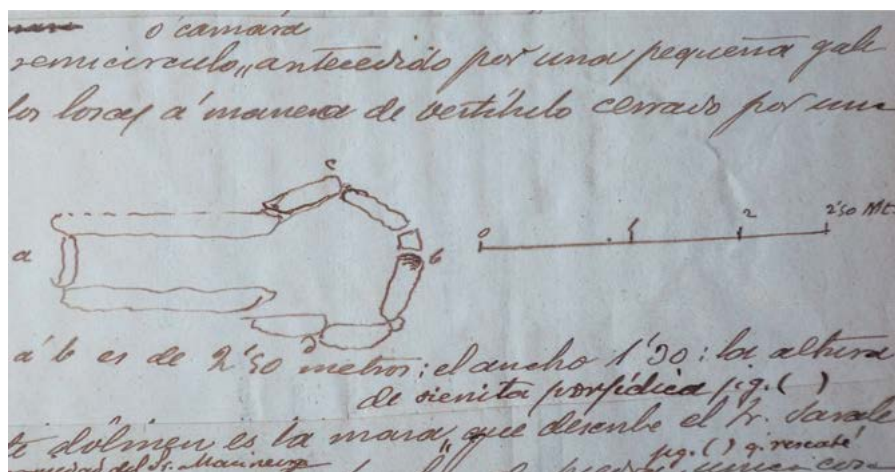 ó camara
semicirculo,, antecedido por una pequeña gale
los losas á manera de vestíbulo cerrado por una
c
a
b
0 1 2 2'50 Mt
á b es de 2'50 metros: el ancho 1'30: la altura
de sienita porfídica fig. ( )
dólmen es la maza,, que describe el Sr.
fig. ( ) q. rescaté
del Sr. Macineira